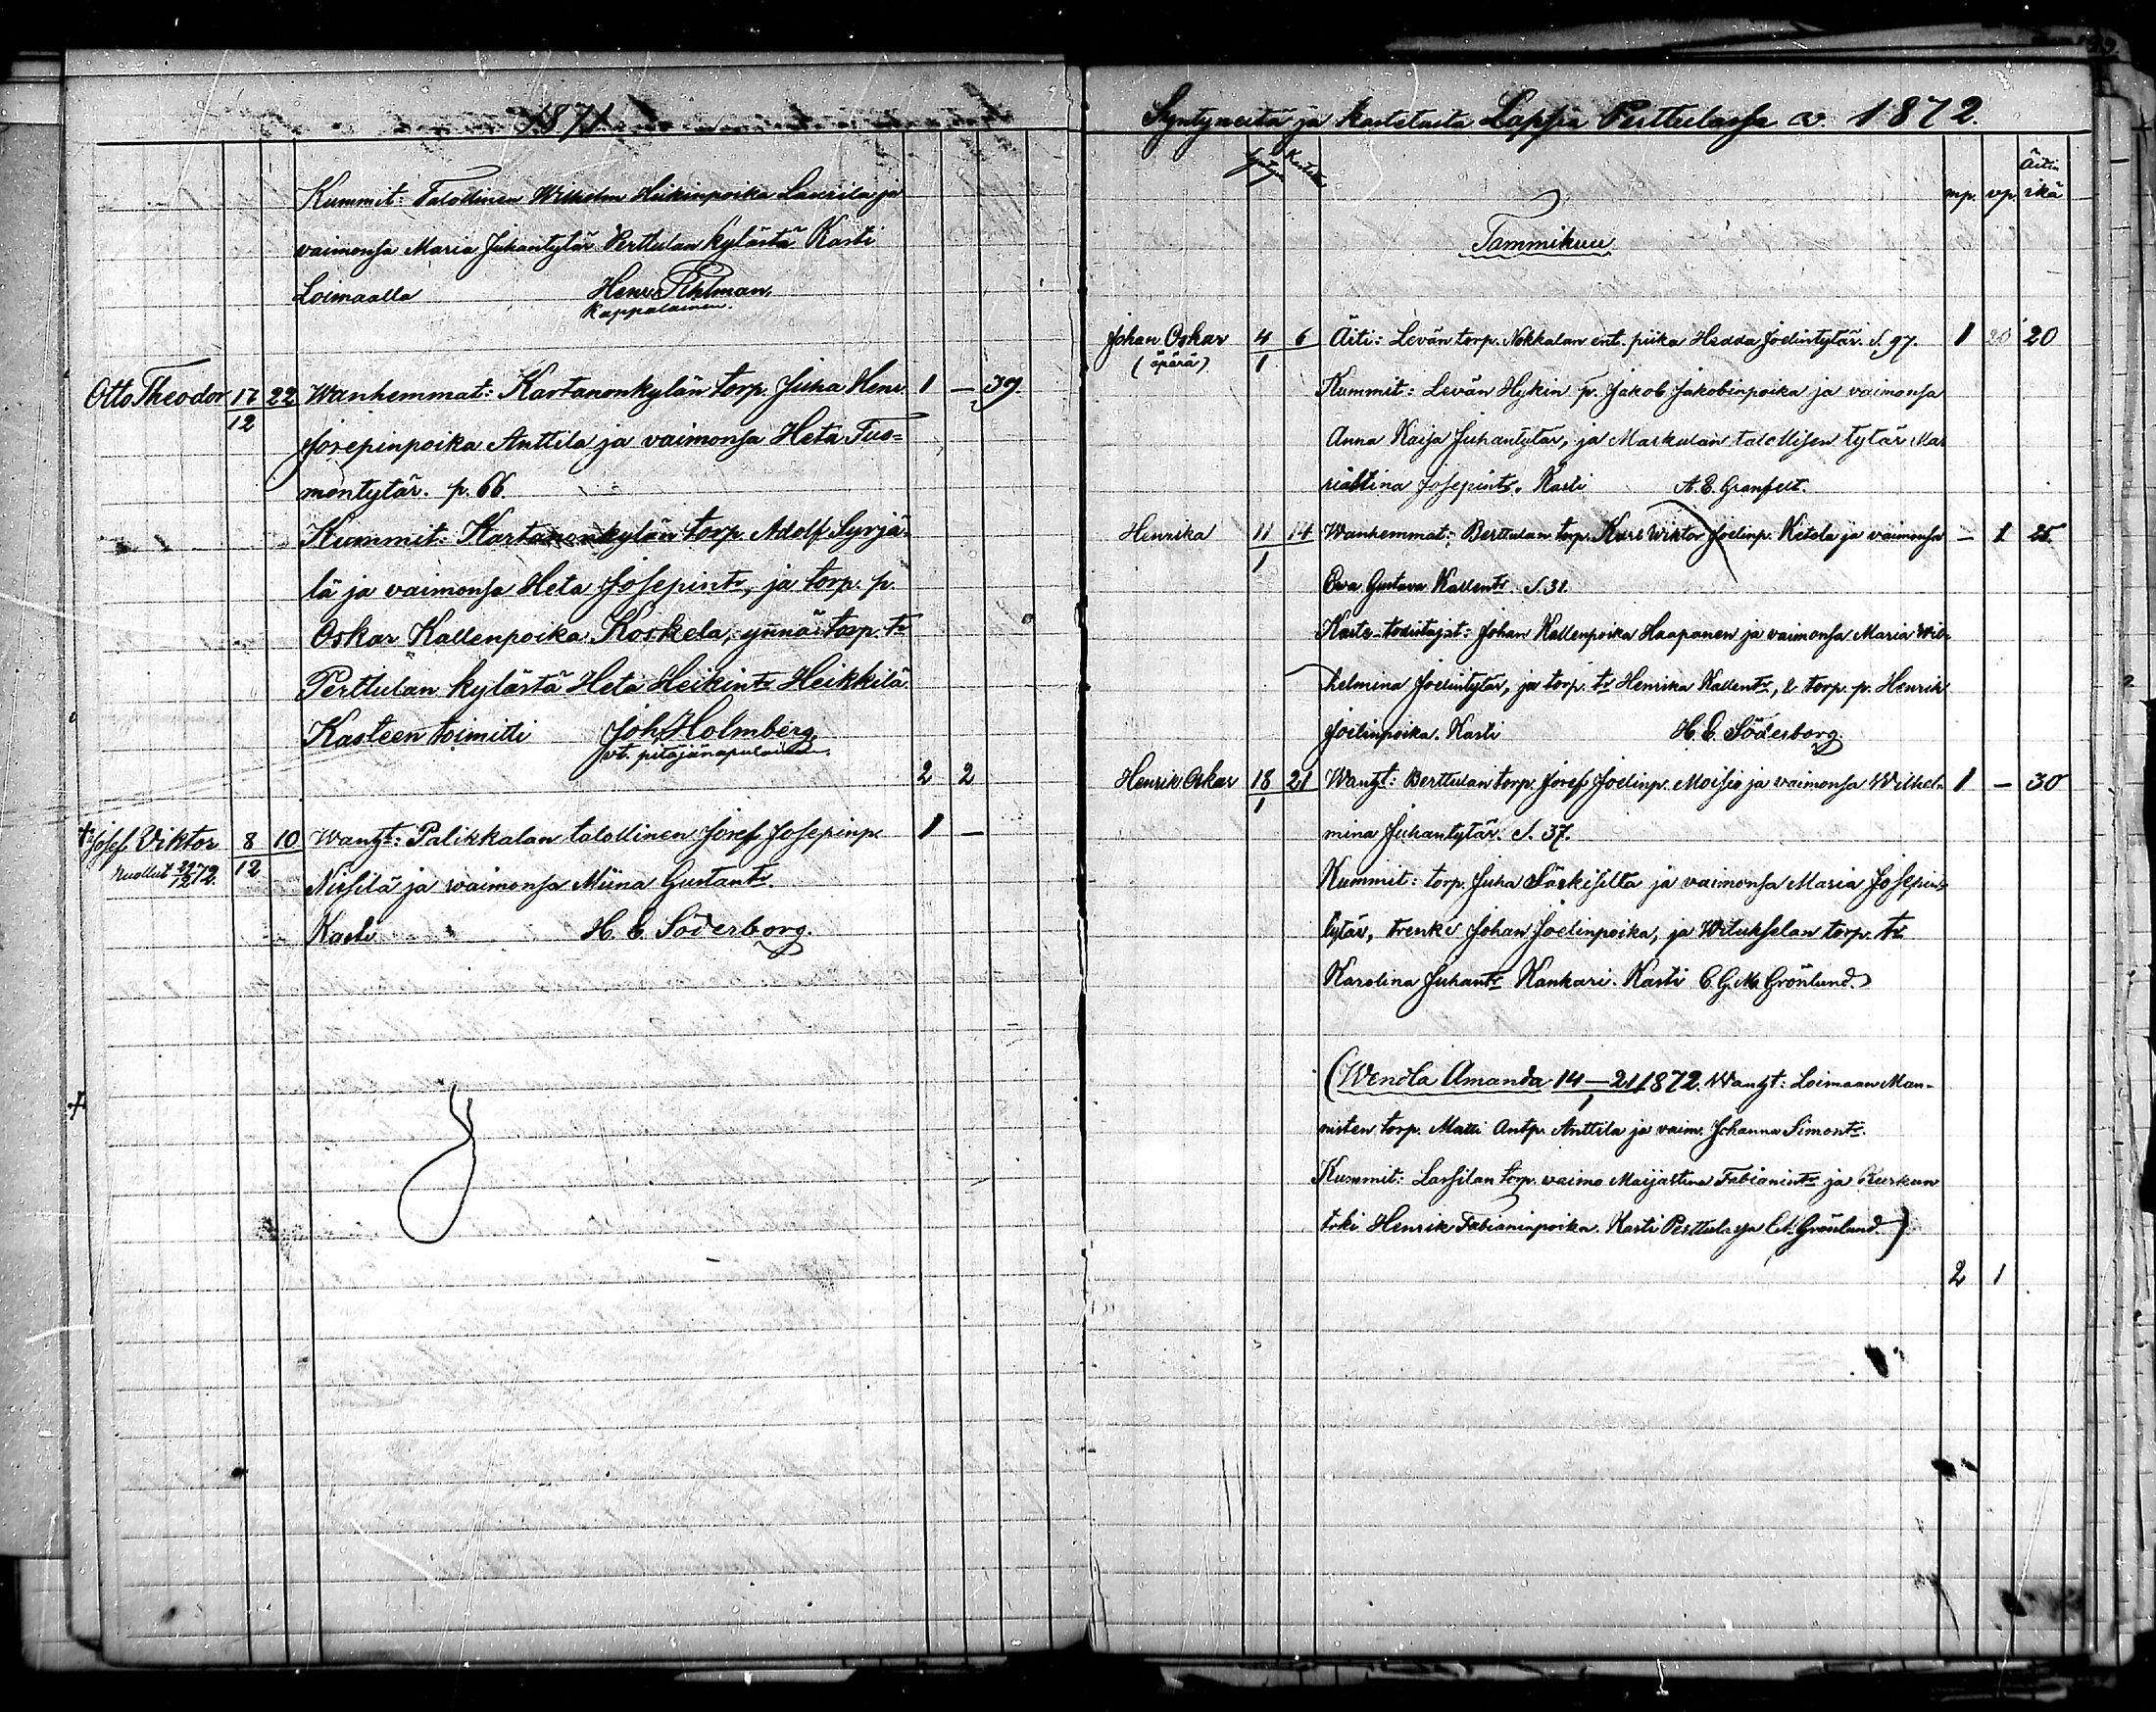 1871
Kummit: Talollinen Wilhelm Heikinpoika Laurila ja
vaimonsa Maria Juhantytär Perttulan kylästä Kasti
Loimaalla Henr. Pihlman,
kappalainen.
Otto Theodor 17/12 22 Wanhemmat: Kartanonkylän torp. Juha Henr. 1 — 39.
Josepinpoika Anttila ja vaimonsa Heta Tuo=
montytär. p. 66.
Kummit: Kartanonkylän torp. Adolf Syrjä=
lä ja vaimonsa Heta Josepintr, ja torp. p.
Oskar Kallenpoika Koskela, ynnä torp. tr
Perttulan kylästä Heta Heikintr Heikkilä
Kasteen toimitti Joh. Holmberg,
vt. pitäjänapulainen.
2 2
† Josef Viktor 8/12 10 Wanht: Palikkalan talollinen Josef Josepinp. 1 —
kuollut 29/12 72.
Nissilä ja waimonsa Miina Gustantr.
Kasti H. E. Söderborg.
Syntyneitä ja kastetuita Lapsia Perttulassa v. 1872.
Syntyn Kastettu mp. vp. Äitin ikä
Tammikuu
Johan Oskar 4/1 6 Äiti: Levän torp. Nokkalan ent. piika Hedda Joelintytär. S. 97. 1 20
(äpärä)
Kummit: Levän Hykin p. Jakob Jakobinpoika ja vaimonsa
Anna Kaisa Juhantytär, ja Markulan talollisen tytär Ma-
riastina Josepintr. Kasti A. E. Granfelt.
Henrika 11/1 14 Wanhemmat: Berttulan torp. Karl Wiktor Joelinp. Ketola ja vaimonsa — 1 25
Eva Gustava Kallentr. S. 32
Kaste-todistajat: Johan Kallenpoika Haapanen ja vaimonsa Maria Wil-
helmina Joelintytär, ja torp. tr Henrika Kallentr, & torp. p. Henrik
Joelinpoika. Kasti H. E. Söderborg.
Henrik Oskar 18/1 21 Wanht: Berttulan torp. Josef Joelinp. Moisio ja vaimonsa Wilhel- 1 — 30
mina Juhantytär. S. 37.
Kummit: torp. Juha Särkisilta ja vaimonsa Maria Josepin-
tytär, trenki Johan Joelinpoika, ja Witukselan torp. tr
Karolina Juhantr Kankari. Kasti C. G. M. Grönlund.
(Wendla Amanda 14—21/1 1872. Wanht: Loimaan Man-
nisten torp. Matti Antp. Anttila ja vaim. Johanna Simontr.
Kummit: Lassilan torp. vaimo Maijastina Fabianintr ja
Henrik Fabianinpoika. Kasti Perttulassa Grönlund.)
2 1